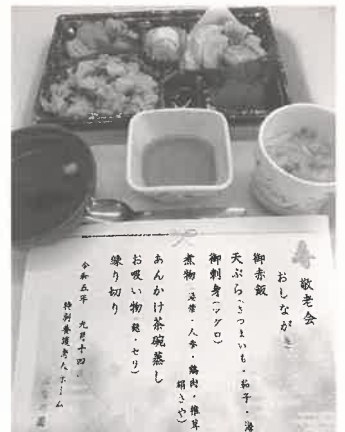 寿
敬老会
おしながき
御赤飯
天ぷら(さつまいも・茄子・海
御刺身(マグロ)
煮物(昆布・人参・鶏肉・椎茸
絹さや)
あんかけ茶碗蒸し
お吸い物(麩・セリ)
練り切り
令和五年 九月十四
特別養護老人ホーム